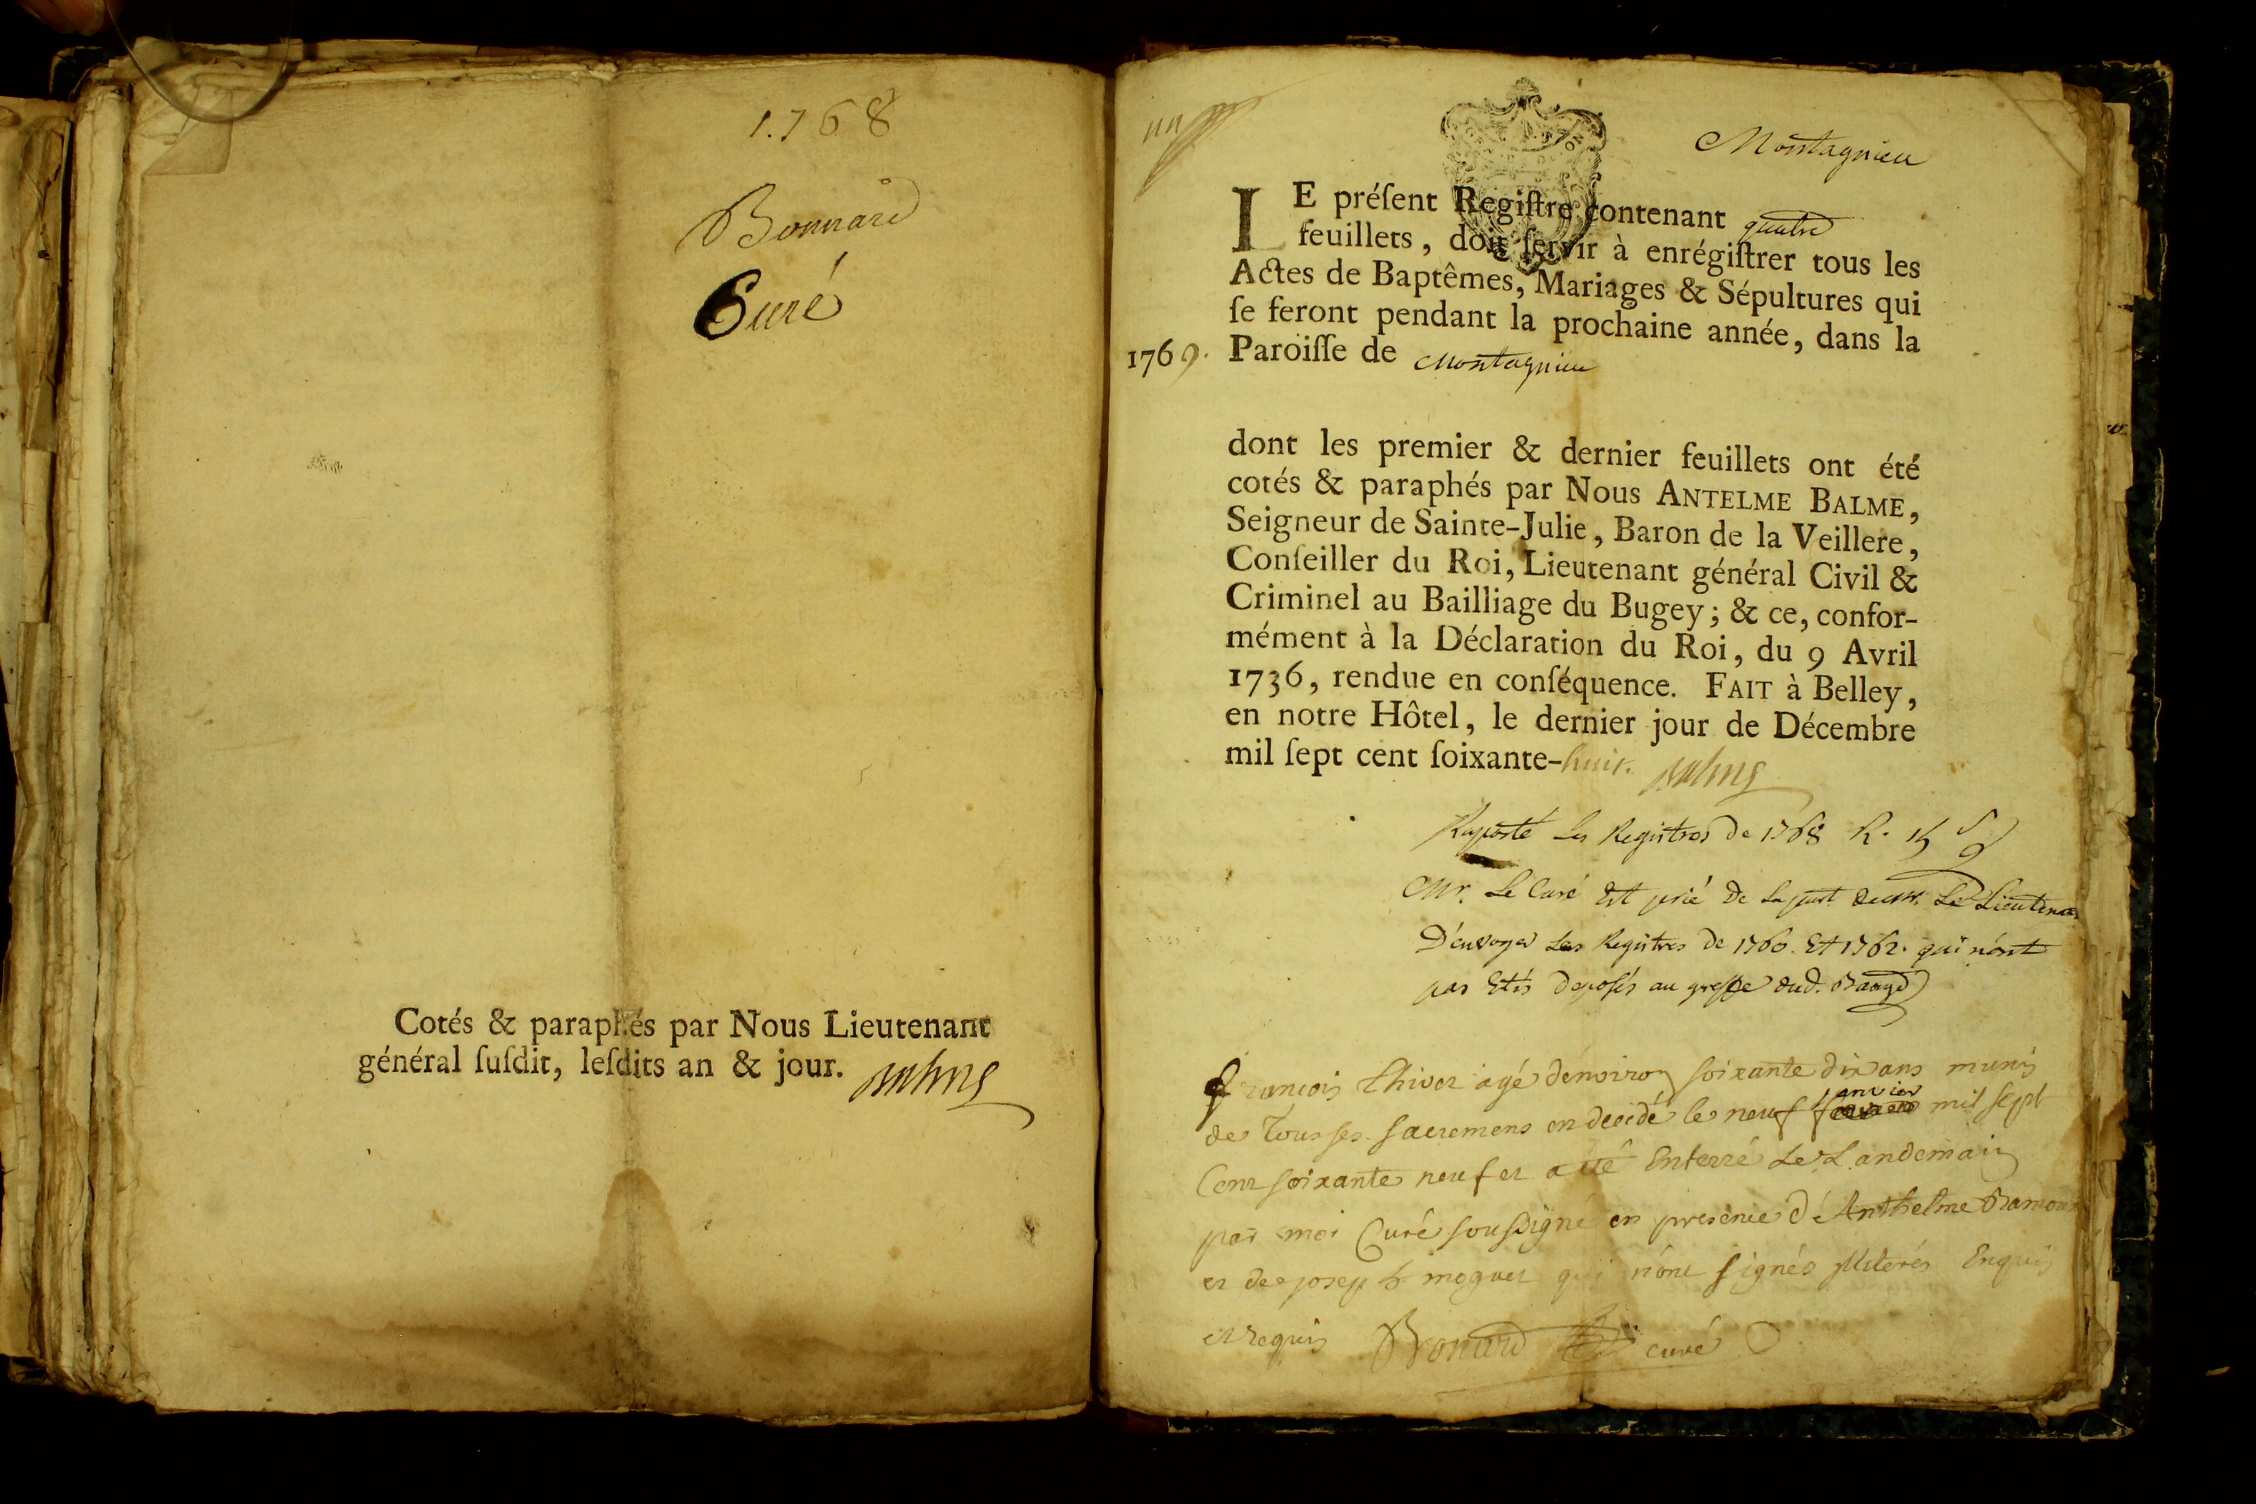 1.768
Bonnard
Curé
Cotés & paraphés par Nous Lieutenant
général ſuſdit, leſdits an & jour. Balme
Montagnieu
LE préſent Regiſtre contenant quatre
feuillets, doit ſervir à enrégiſtrer tous les
Actes de Baptêmes, Mariages & Sépultures qui
ſe feront pendant la prochaine année, dans la
1769. Paroiſſe de Montagnieu
dont les premier & dernier feuillets ont été
cotés & paraphés par Nous ANTELME BALME,
Seigneur de Sainte-Julie, Baron de la Veillere,
Conſeiller du Roi, Lieutenant général Civil &
Criminel au Bailliage du Bugey; & ce, confor-
mément à la Déclaration du Roi, du 9 Avril
1736, rendue en conſéquence. FAIT à Belley,
en notre Hôtel, le dernier jour de Décembre
mil ſept cent ſoixante-huit. Balme
Raporté Les Registres de 1768
Mr. Le Curé Est prié de La part de Mr. Le Lieutenant
D'envoyer Les Registres de 1760. Et 1762. qui n'ont
pas Etés deposés au greffe dud.
françois Thivet agé denviron soixante dix ans munis
de Tous ses sacremens en decidé le neuf janvier mil sept
Cent soixante neuf et a été Enterré Le Landemain
par moi Curé soussigné en presence d'Anthelme
et de joseph moguet qui n'ont signés illiterés Enquis
et requis Bonard curé